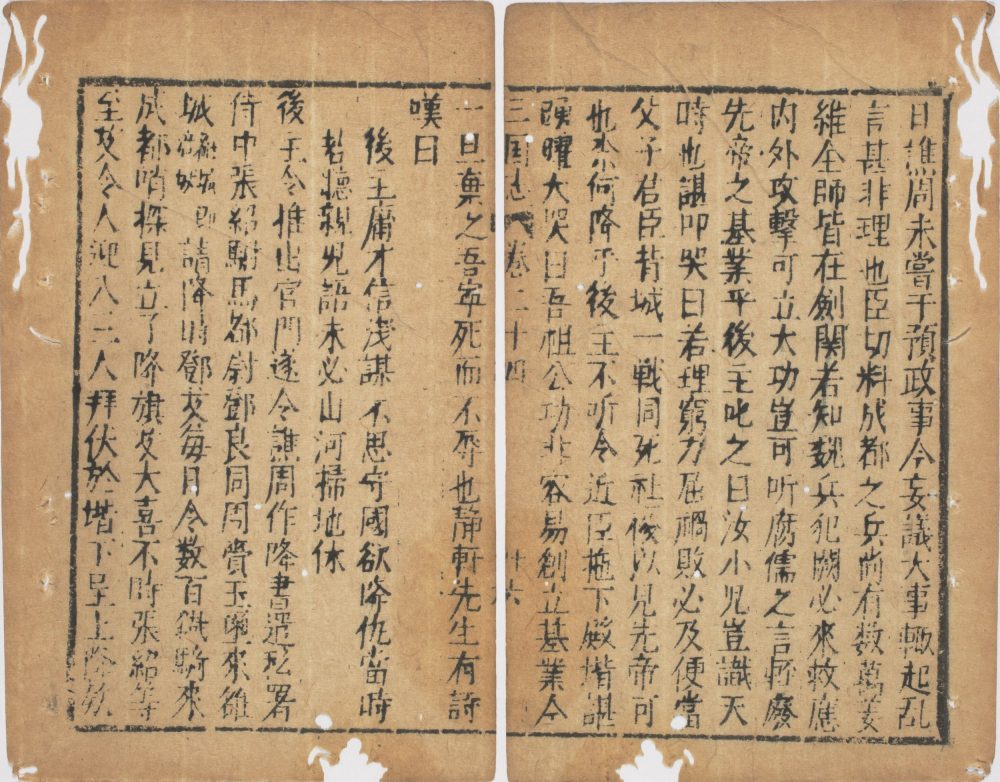 日譙周未嘗干預政事今妄議大事輙起乱
言甚非理也臣切料成都之兵尚有数萬姜
維全師皆在劍関若知魏兵犯闕必來救應
内外攻擊可立大功豈可听腐儒之言輕廢
先帝之基業乎後主叱之曰汝小児豈識天
時也諶叩哭曰若理窮力屈禍敗必及便當
父子君臣背城一戰同死社稷以見先帝可
也奈何降乎後主不听令近臣拖下殿堦諶
踴躍大哭曰吾祖公功非容易創立基業今
三国志 卷二十四 廿六
一旦棄之吾寜死而不辱也静軒先生有詩
嘆曰
後主庸才信淺謀不思守國欲降仇當時
若聴親児語未必山河掃地休
後主令推出宫門遂令譙周作降書遣私署
侍中張紹駙馬都尉鄧良同周賫玉璽來雒
城 請降時鄧艾每日令数百鐵騎來
成都哨探見立了降旗艾大喜不時張紹等
至艾令人迎入三人拜伏於堦下呈上降欵